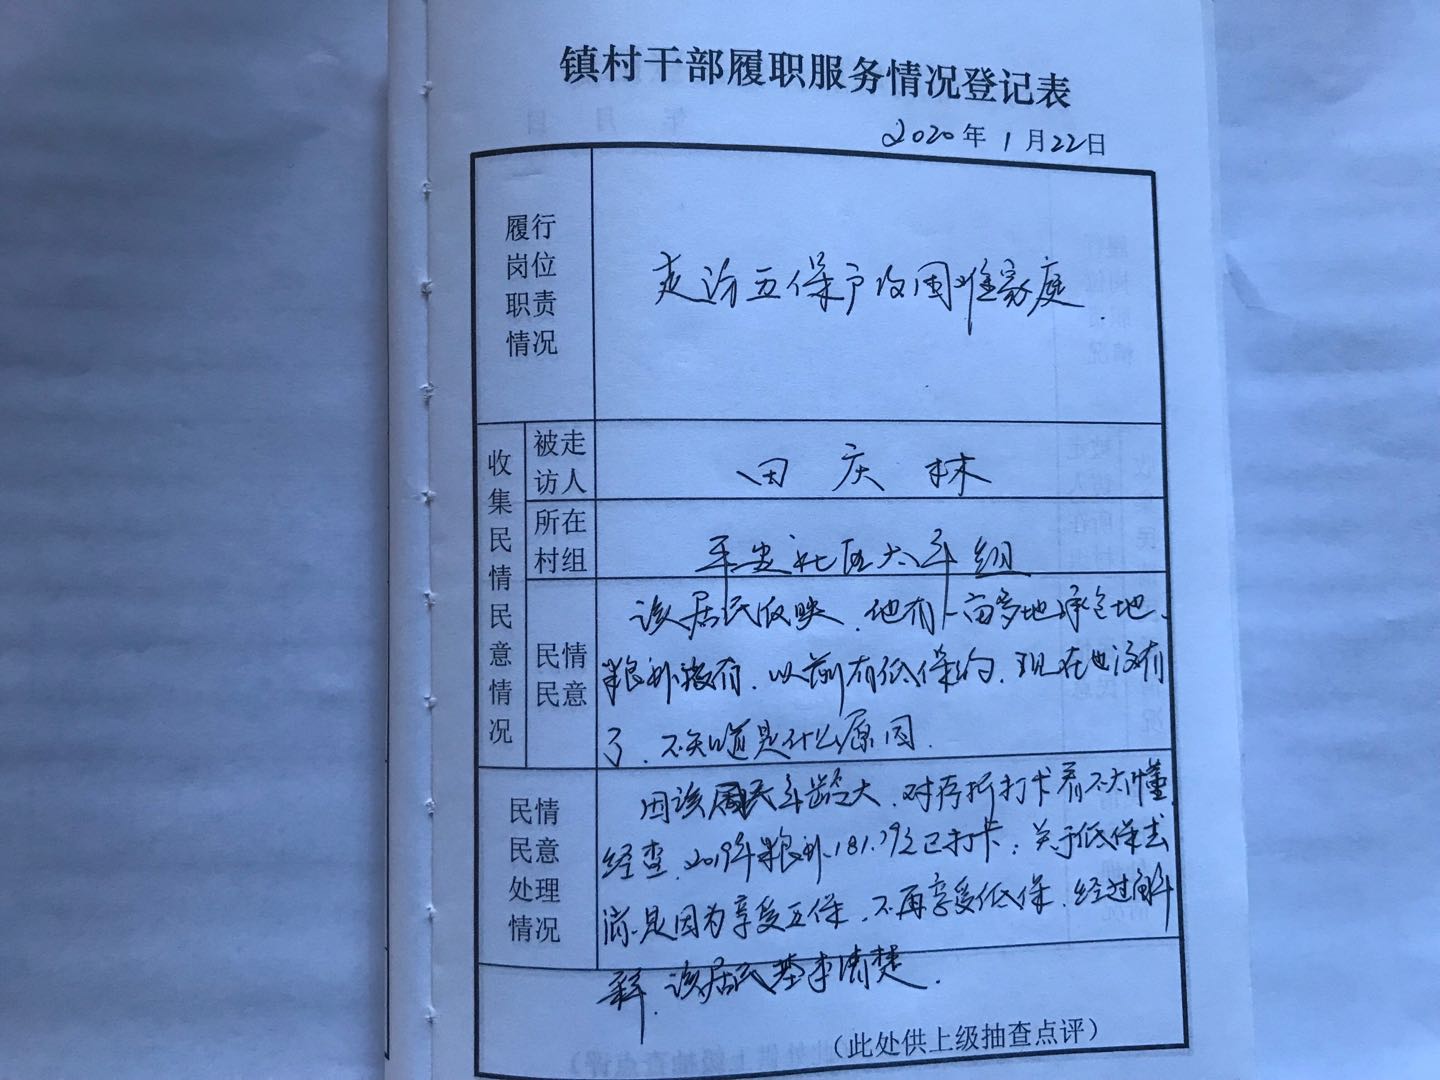 镇村干部履职服务情况登记表
2020年1月22日
履行
岗位
职责
情况
走访五保户及困难家庭.
收集民情民意情况
被走
访人
田庆林
所在
村组
平安社区太平组
民情
民意
该居民反映.他有一亩多地承包地、
粮补没有.以前有低保的.现在也没有
了.不知道是什么原因.
民情
民意
处理
情况
因该居民年龄大.对存折打卡看不太懂.
经查.2019年粮补181.79元已打卡;关于低保去
消.是因为享受五保.不再享受低保.经过解
释.该居民基本清楚.
(此处供上级抽查点评)